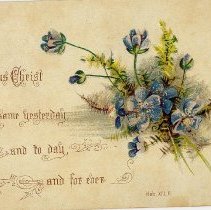 us Christ
same yesterday
and to day,
and for ever
Heb. XIII. 8.